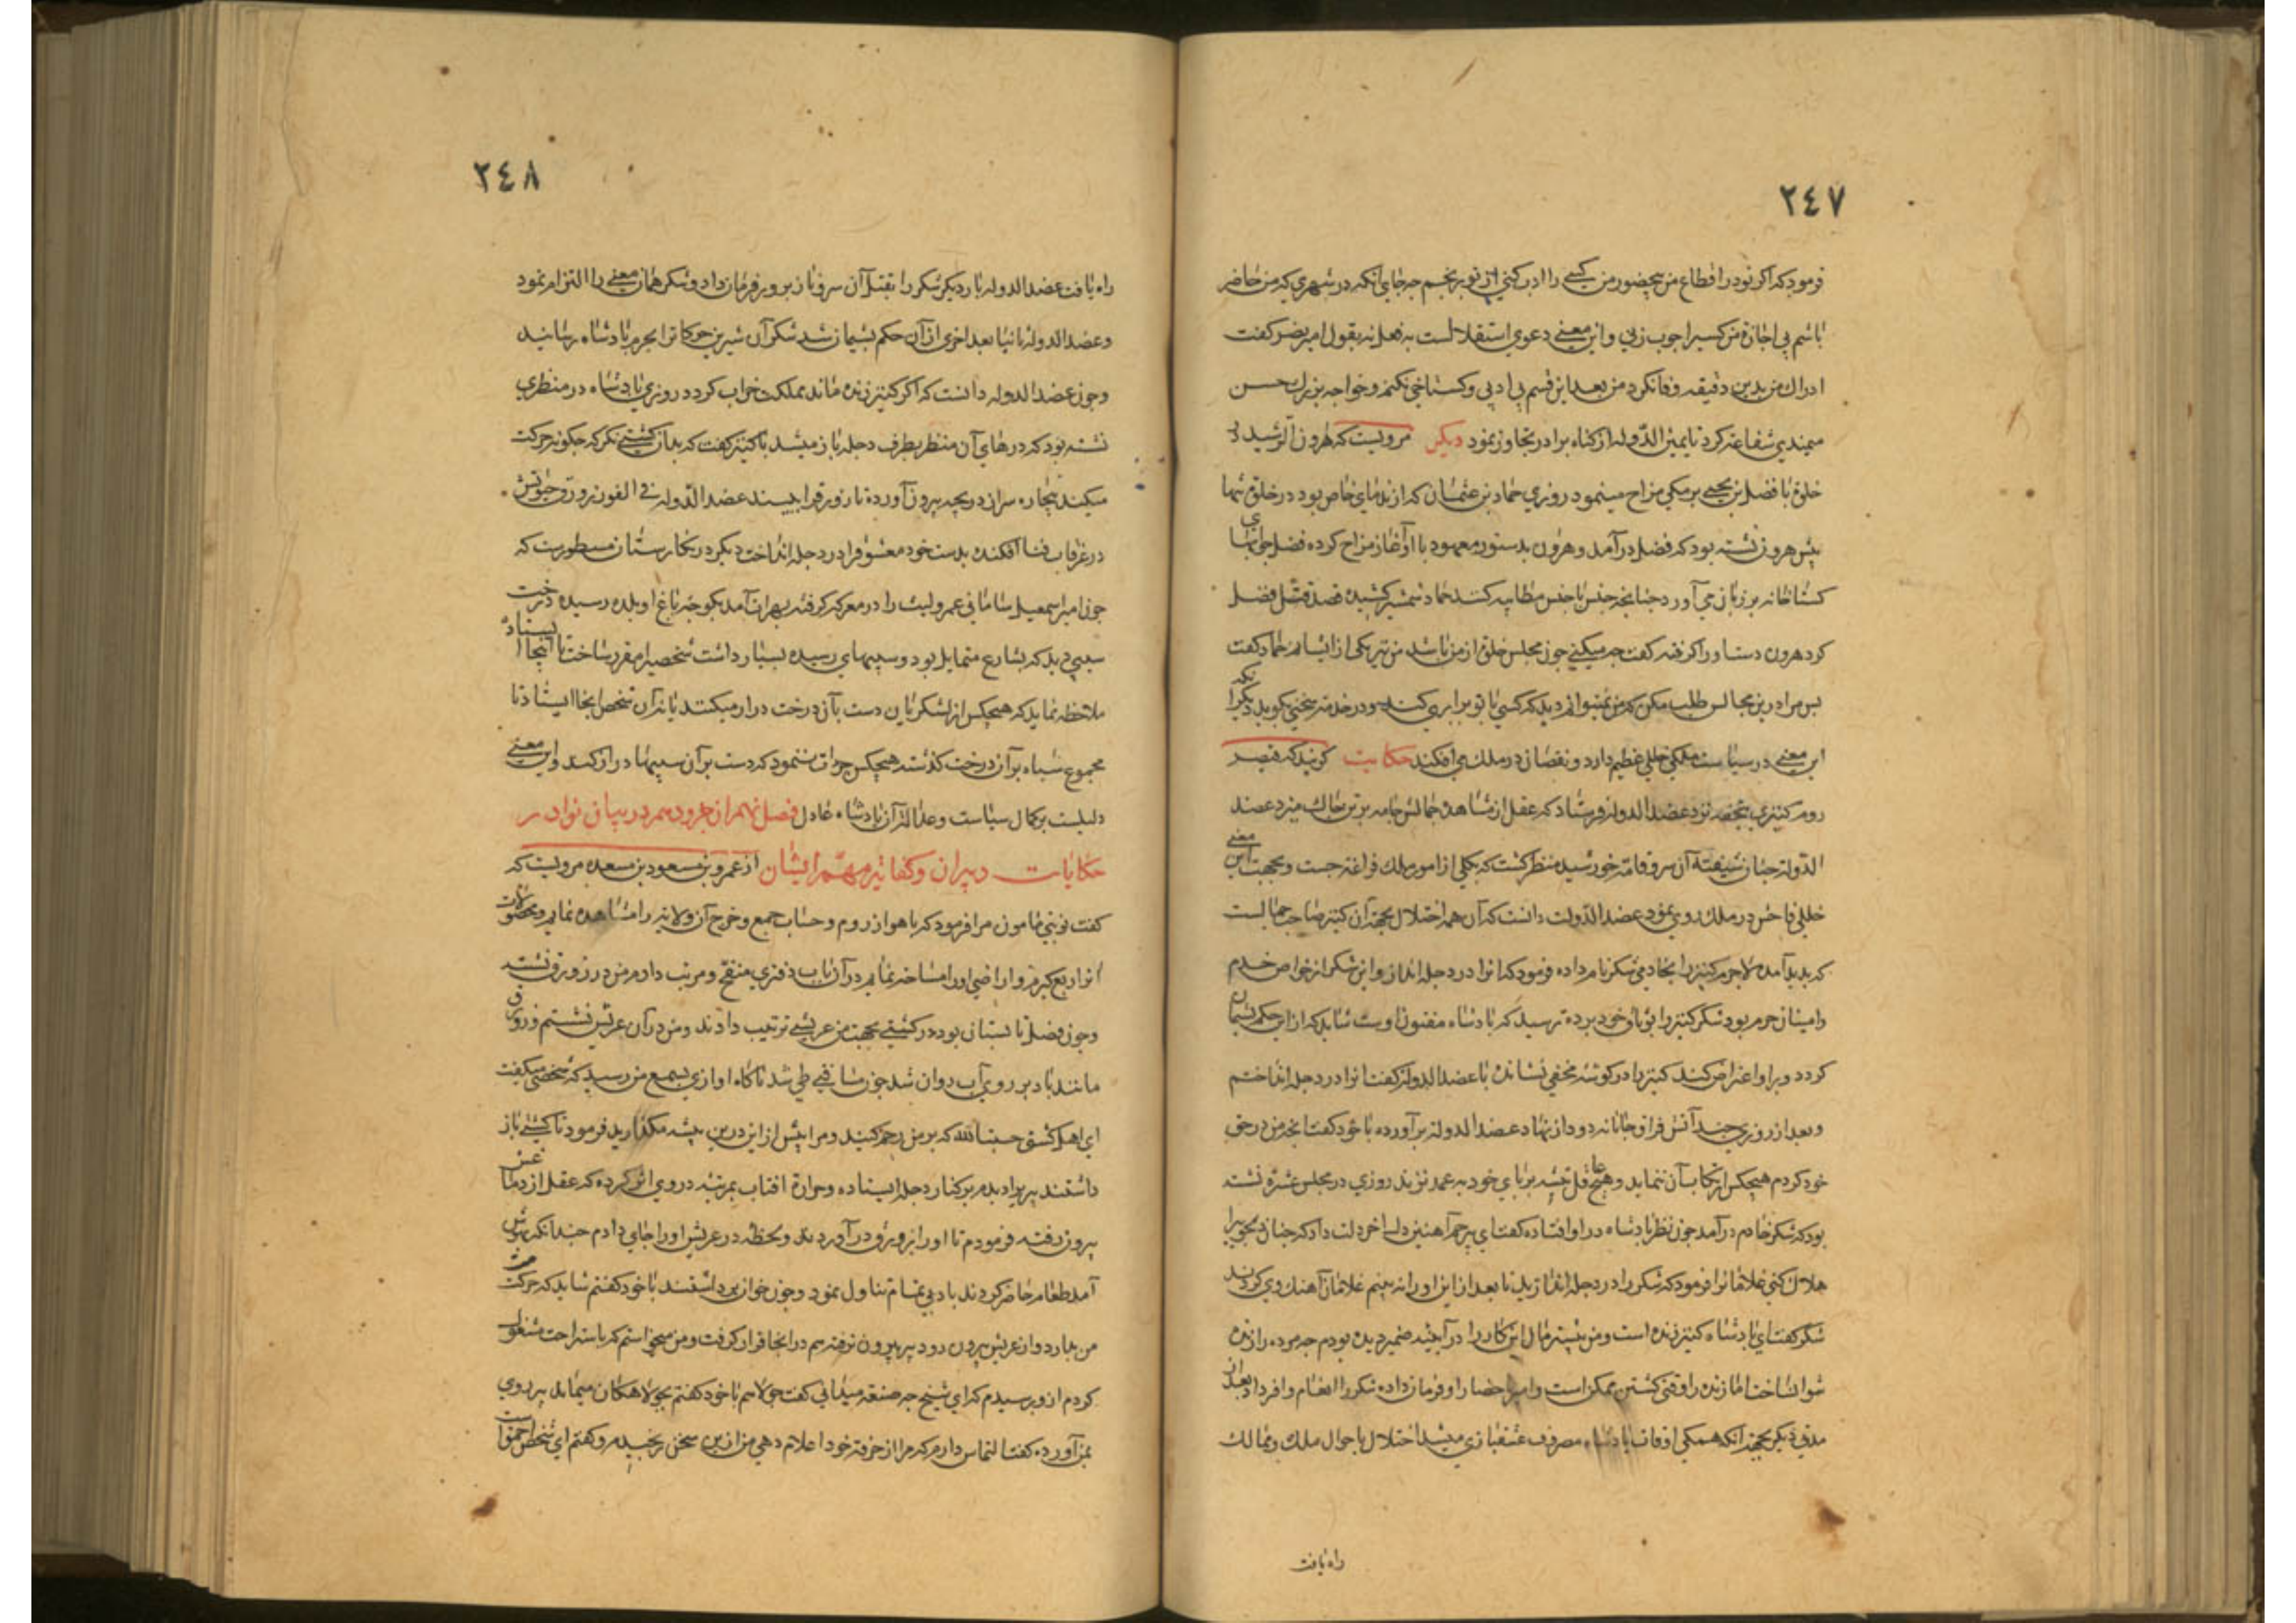 ٢٤٧
فرمود که اگر تو در اقطاع من بحضور من کسی را ادب کنی از تو برنجم چه جای آنکه در شهری که من حاضر
باشم بی اجازة من کسیرا چوب زنی و این معنی دعوی استقلالست به فعل نه بقول امیر نصر کفت
ادراک من بدین دقیقه وفا نکرد من بعد این قسم بی ادبی و کستاخی نکنم و خواجه بزرک حسن
میمندی شفاعة کرد تا یمین الدّوله از کناه برادر تجاوز نمود دیکر مرویست که هرون الرّشید در
خلوة با فضل بن یحیی برمکی مزاح مینمود روزی حماد بن عثمان که از ندمای خاص بود در خلوة تنها
پیش هرون نشسته بود که فضل درآمد و هرون بدستور معهود با او آغاز مزاح کرده فضل جوابهای
کستاخانه بر زبان می آورد چنانچه جنس با جنس مطایبه کنند حماد شمشیر کشیده قصد قتل فضل
کرد هرون دست او را کرفته کفت چه میکنی چون مجلس خلوة از من باشد من نیز یکی از ایشانم حماد کفت
پس مرا در این مجالس طلب مکن که من نمیتوانم دید که کسی با تو برابری کند و در خدمتت سخنی کوید دیکر آنکه
این معنی در سیاست ملکی خللی عظیم دارد و نقصان در ملک می افکند حکایت کویند که قیصر
روم کنیزی بتحفه نزد عضد الدوله فرستاد که عقل از مشاهدة جمالش جامه بر تن چاک میزد عضد
الدّوله چنان شیفتة آن سرو قامة خورشید منظر کشت که بکلی از امور ملک فراغة جست و بجهت این معنی
خللی فاحش در ملک روی نمود عضد الدّولت دانست که آن همه اختلال بجهة آن کنیز صاحب جمالست
که پدید آمده لاجرم کنیز را بخادمی شکر نام داده فرمود که او را در دجله انداز و این شکر از خواص خدم
و امینان حرم بود شکر کنیز را بوثاق خود برده ترسید که پادشاه مفتون اوست شاید که از این حکم پشیمان
کردد و برا و اعتراض کند کنیز را در کوشه مخفی نشانده با عضد الدوله کفت او را در دجله انداختم
و بعد از روزی چند آتش فراق جانانه دود از نهاد عضد الدوله برآورده با خود کفت آنچه من در حق
خود کردم هیچکس ارتکاب آن ننماید و هیچ عاقل تیشه بر پای خود به عمد نزند روزی در مجلس عشرة نشسته
بود که شکر خادم درآمد چون نظر پادشاه در او افتاده کفت ای بیرحم آهنین دل آخر دلت داد که چنان محبوبی را
هلاک کنی غلامانرا فرمود که شکر را در دجله اندازید تا بعد از این او را نه بینم غلامان آهنک وی کردند
شکر کفت ای پادشاه کنیز زنده است و من پیشتر مآل این کار را در آیینه ضمیر دیده بودم چه مرده را زنده
نتوان ساخت اما زنده را وقتی کشتن ممکن است و امیر احضار او فرمان داده شکر را انعام وافر داد بعد از آن
مدتی دیکر بجهة آنکه همکی اوقات پادشاه مصروف عشقبازی میشد اختلال باحوال ملک و ممالک
راه یافت
٢٤٨
راه یافت عضد الدوله بار دیکر شکر را بقتل آن سرو ناز پرور فرمان داد و شکر همان معنی را التزام نمود
و عضد الدوله ثانیا بعد اخری از آن حکم پشیمان شد شکر آن شیرین حرکات را بحرم پادشاه رسانید
و چون عضد الدوله دانست که اکر کنیز زنده ماند مملکت خراب کردد روزی پادشاه در منظری
نشسته بود که درهای آن منظر بطرف دجله باز میشد با کنیز کفت که بدان کشتی نکر که چکونه حرکت
میکند بیچاره سر از دریچه بیرون آورده تا زورق را ببیند عضد الدّوله فی الفور زورق حیوتش
در غرقاب فنا افکنده بدست خود معشوق را در دجله انداخت دیکر در نکارستان مسطورست که
چون امیر اسمعیل سامانی عمرو لیث را در معرکه کرفته بهراة آمد بکوچه باغ او بلده رسیده درخت
سیبی دید که بشارع متمایل بود و سیبهای رسیده بسیار داشت شخصیرا مقرر ساخت تا آنجا ایستاده
ملاحظه نماید که هیچکس از لشکریان دست بآن درخت دراز میکنند یا نه آن شخص آنجا ایستاد تا
مجموع سپاه بر آن درخت کذشته هیچکس جرأت ننمود که دست بر آن سیبها دراز کند و این معنی
دلیلست بر کمال سیاست و عدالة آن پادشاه عادل فصل نهم از جزو دهم در بیان نوادر
حکایات دبیران و کفایة مهمّ ایشان از عمرو بن مسعود بن مسعده مرویست که
کفت نوبتی مامون مرا فرمود که باهواز روم و حساب جمع و خرج آن ولایة را مشاهده نمایم و محصولات
آنرا ربع کیرم و اراضی او را مساحة نمایم در آن باب دفتری منقح و مرتب دارم من در زورق نشسته
و چون فصل تابستان بود در کشتی بجهت من عریشی ترتیب دادند و من در آن عریش نشستم و زورق
مانند باد بر روی آب روان شد چون مسافتی طی شد ناکاه اوازی بسمع من رسید که شخصی میکفت
ای اهل کشتی حسبنا لله که بر من رحم کنید و مرا بیش از این درین بیشه مکذارید فرمود تا کشتی باز
داشتند پیر را دیدم بر کنار دجله ایستاده و حرارة افتاب بمرتبه در وی اثر کرده که عقل از دماغش
بیرون رفته فرمودم تا او را بزورق درآوردند و لحظه در عریش او را جای دادم چندانکه بهوش
آمد طعام حاضر کردند با دبی تمام تناول نمود و چون خوان برداشتند با خود کفتم شاید که حرکت
من بدارد و از عریش بیرون رود پیر بیرون نرفته هم در آنجا قرار کرفت و من میخواستم که باستراحت مشغول
کردم از و پرسیدم که ای شیخ چه صنعة میدانی کفت حولاهم با خود کفتم بجولاهکان میماند پیر روی
بمن آورده کفت التماس دارم که مرا از حرفة خود اعلام دهی من ازین سخن رنجیدم و کفتم ای شخص احمق